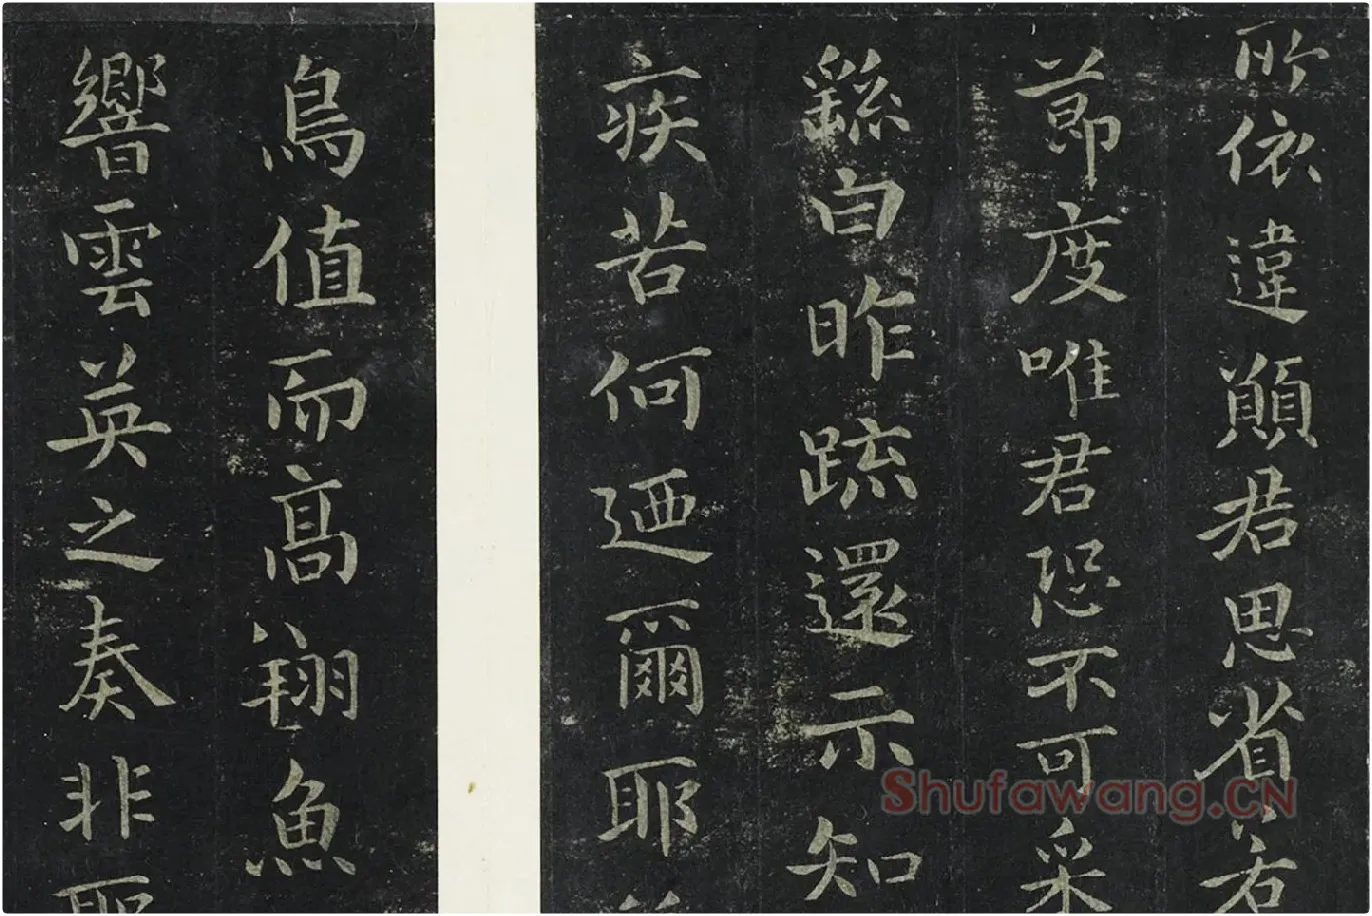 所依違顛君思省若
節度唯君恐不可采
繇白昨疏還示知
疾苦何迺爾耶
鳥值而高翔魚
響雲英之奏非耶
Shufawang.CN